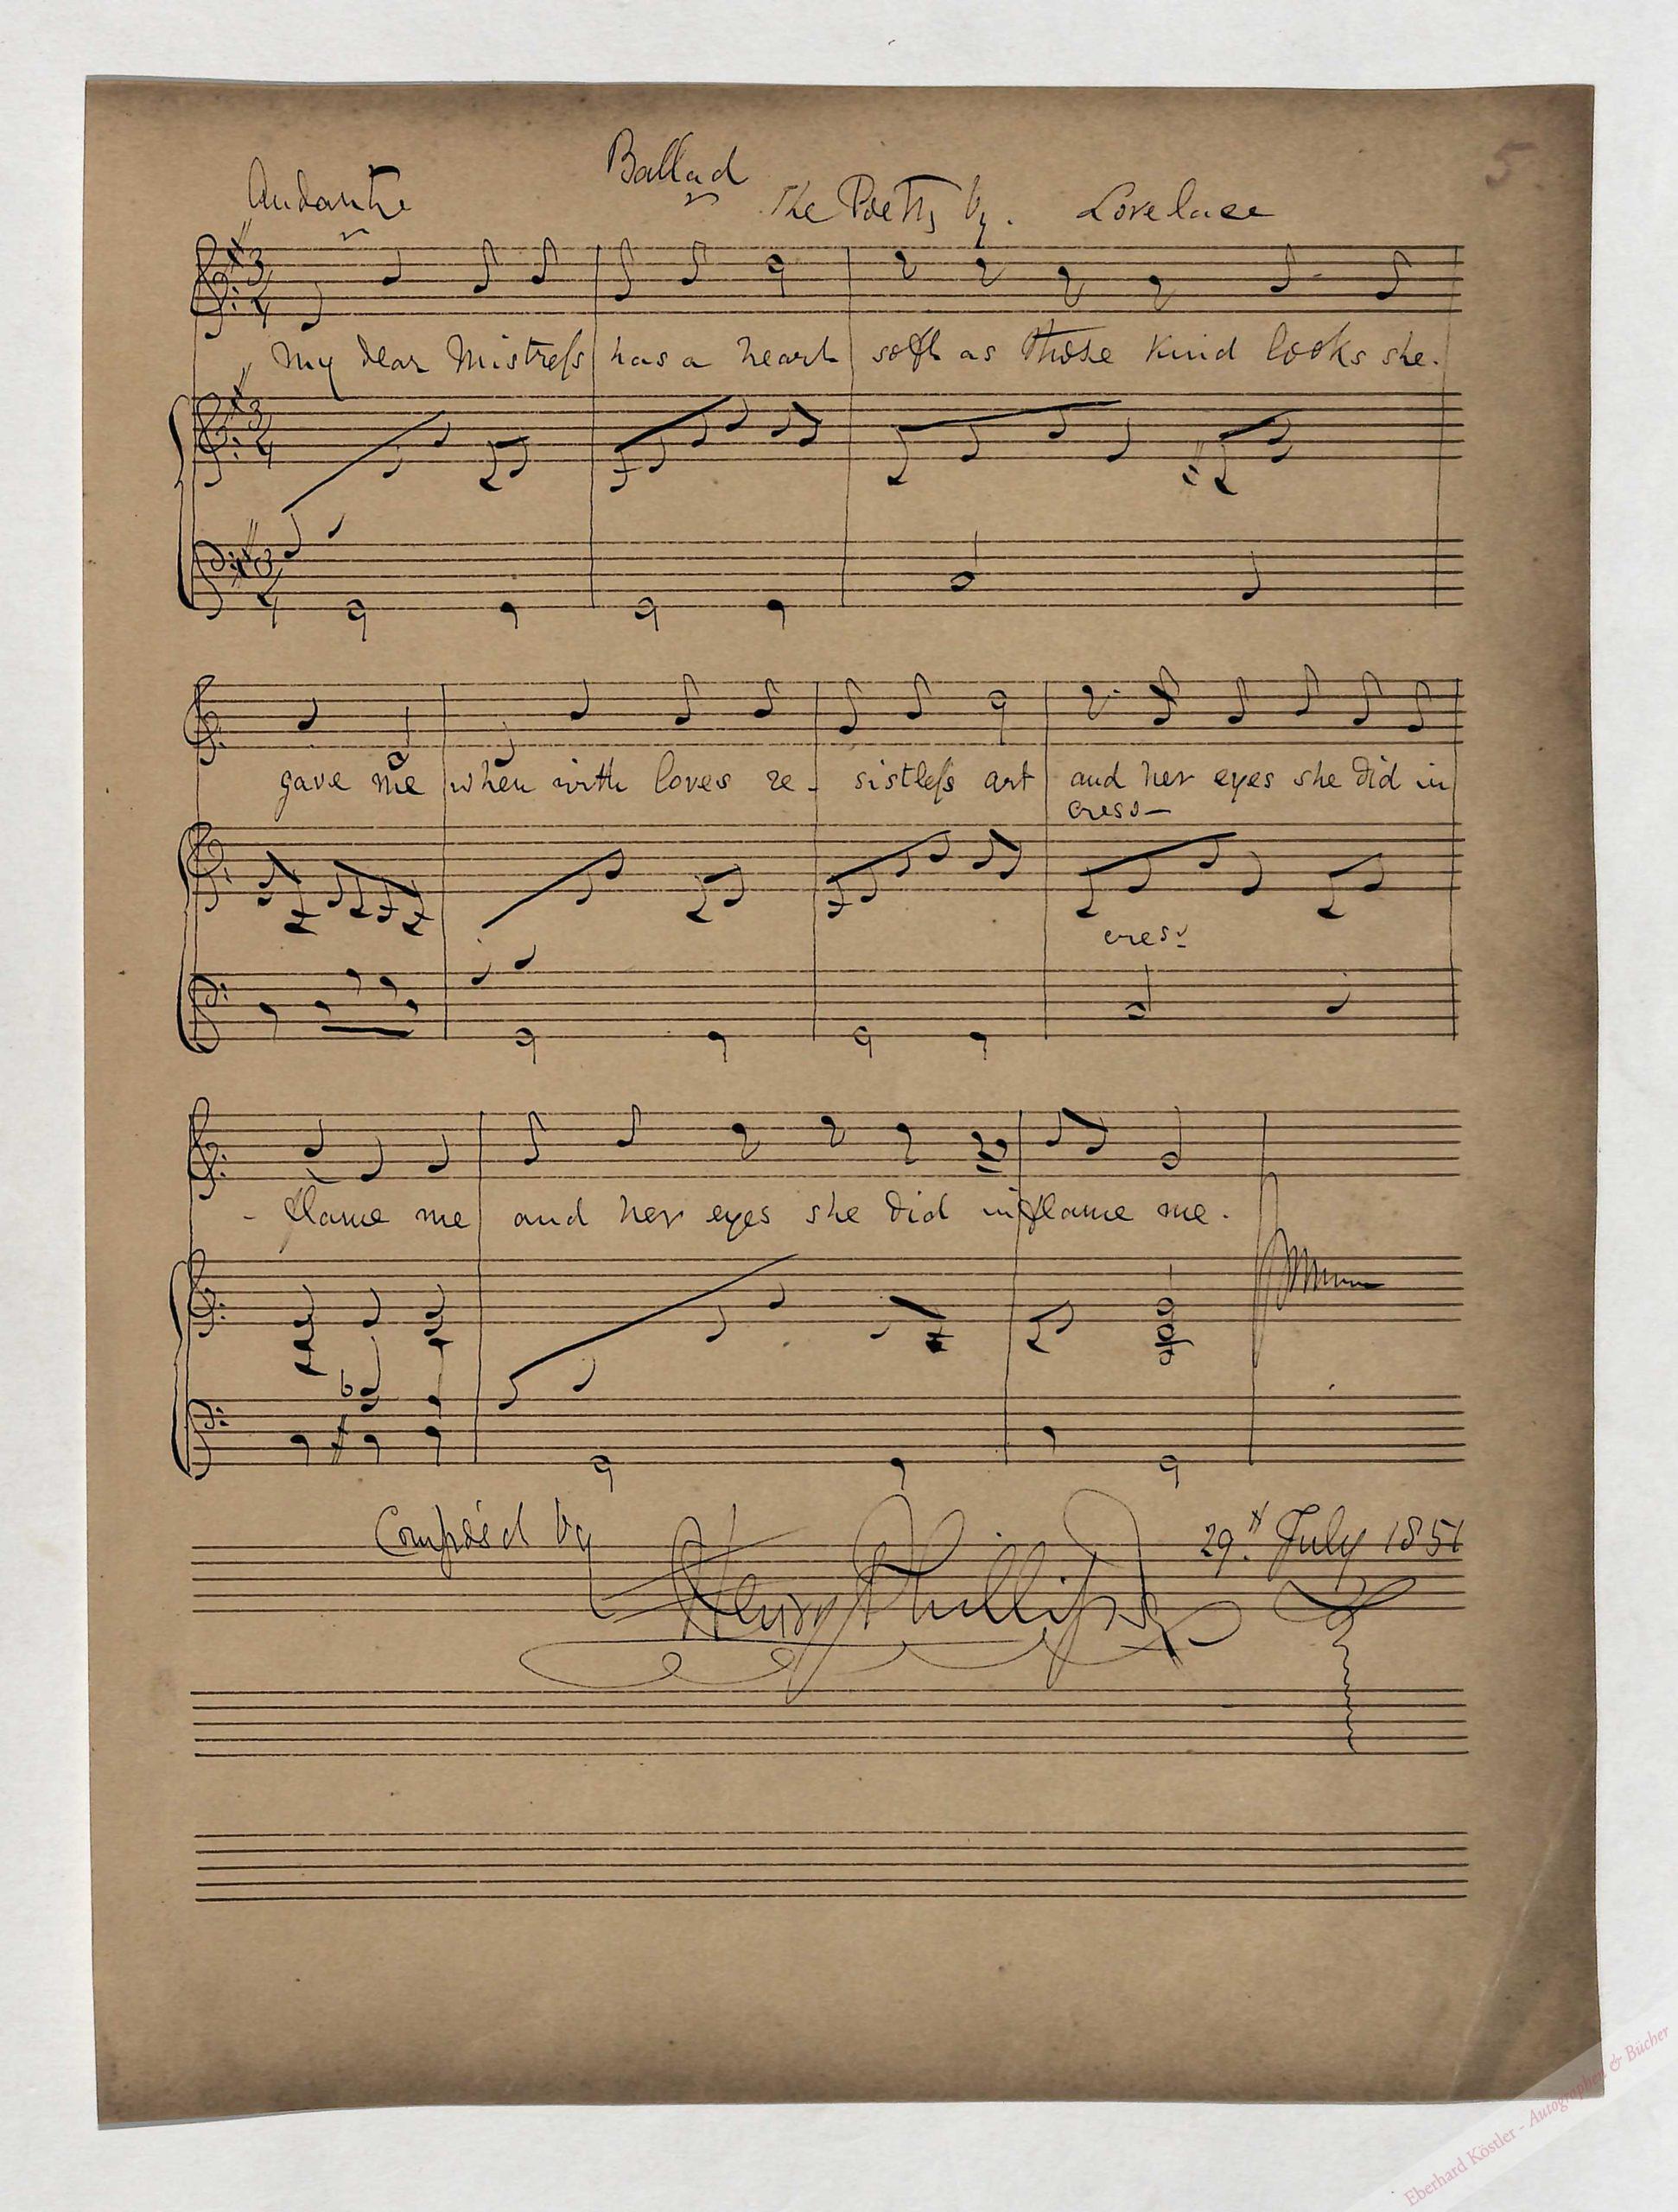 5
Ballad
Andante
The Poetry by. Lovelace
3/4
My dear Mistress has a heart soft as those kind looks she.
3/4
3/4
gave me when with loves re- sistless art and her eyes she did in
cres-
cres:
- flame me and her eyes she did inflame me.
Compos'd by Henry Phillips 29. July 1851
Eberhard Köstler - Autographen & Bücher